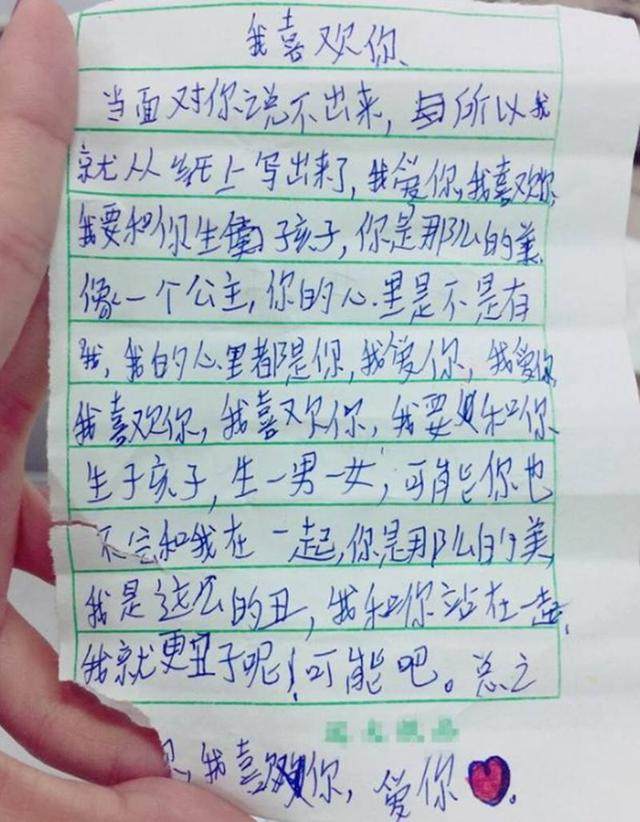 我喜欢你
当面对你说不出来,所以我
就从纸上写出来了,我爱你,我喜欢你,
我要和你生子孩子,你是那么的美
像一个公主,你的心里是不是有
我,我的心里都是你,我爱你,我爱你
我喜欢你,我喜欢你,我要和你
生子孩子,生一男一女,可能你也
不会和我在一起,你是那么的美
我是这么的丑,我和你站在一起,
我就更丑了呢!可能吧。总之
,我喜欢你,爱你